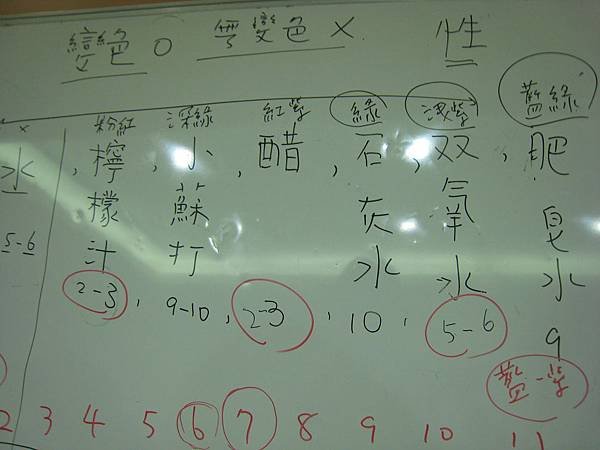 變色 O 變色 X 性
x 粉紅 深綠 紅紫 綠 紫 藍綠
水 , 檸檬汁 , 小蘇打 , 醋 , 石灰水 , 双氧水 , 肥皂水
5-6 2-3 , 9-10 , 2-3 , 10 , 5-6 9
藍-紫
2 3 4 5 6 7 8 9 10 11